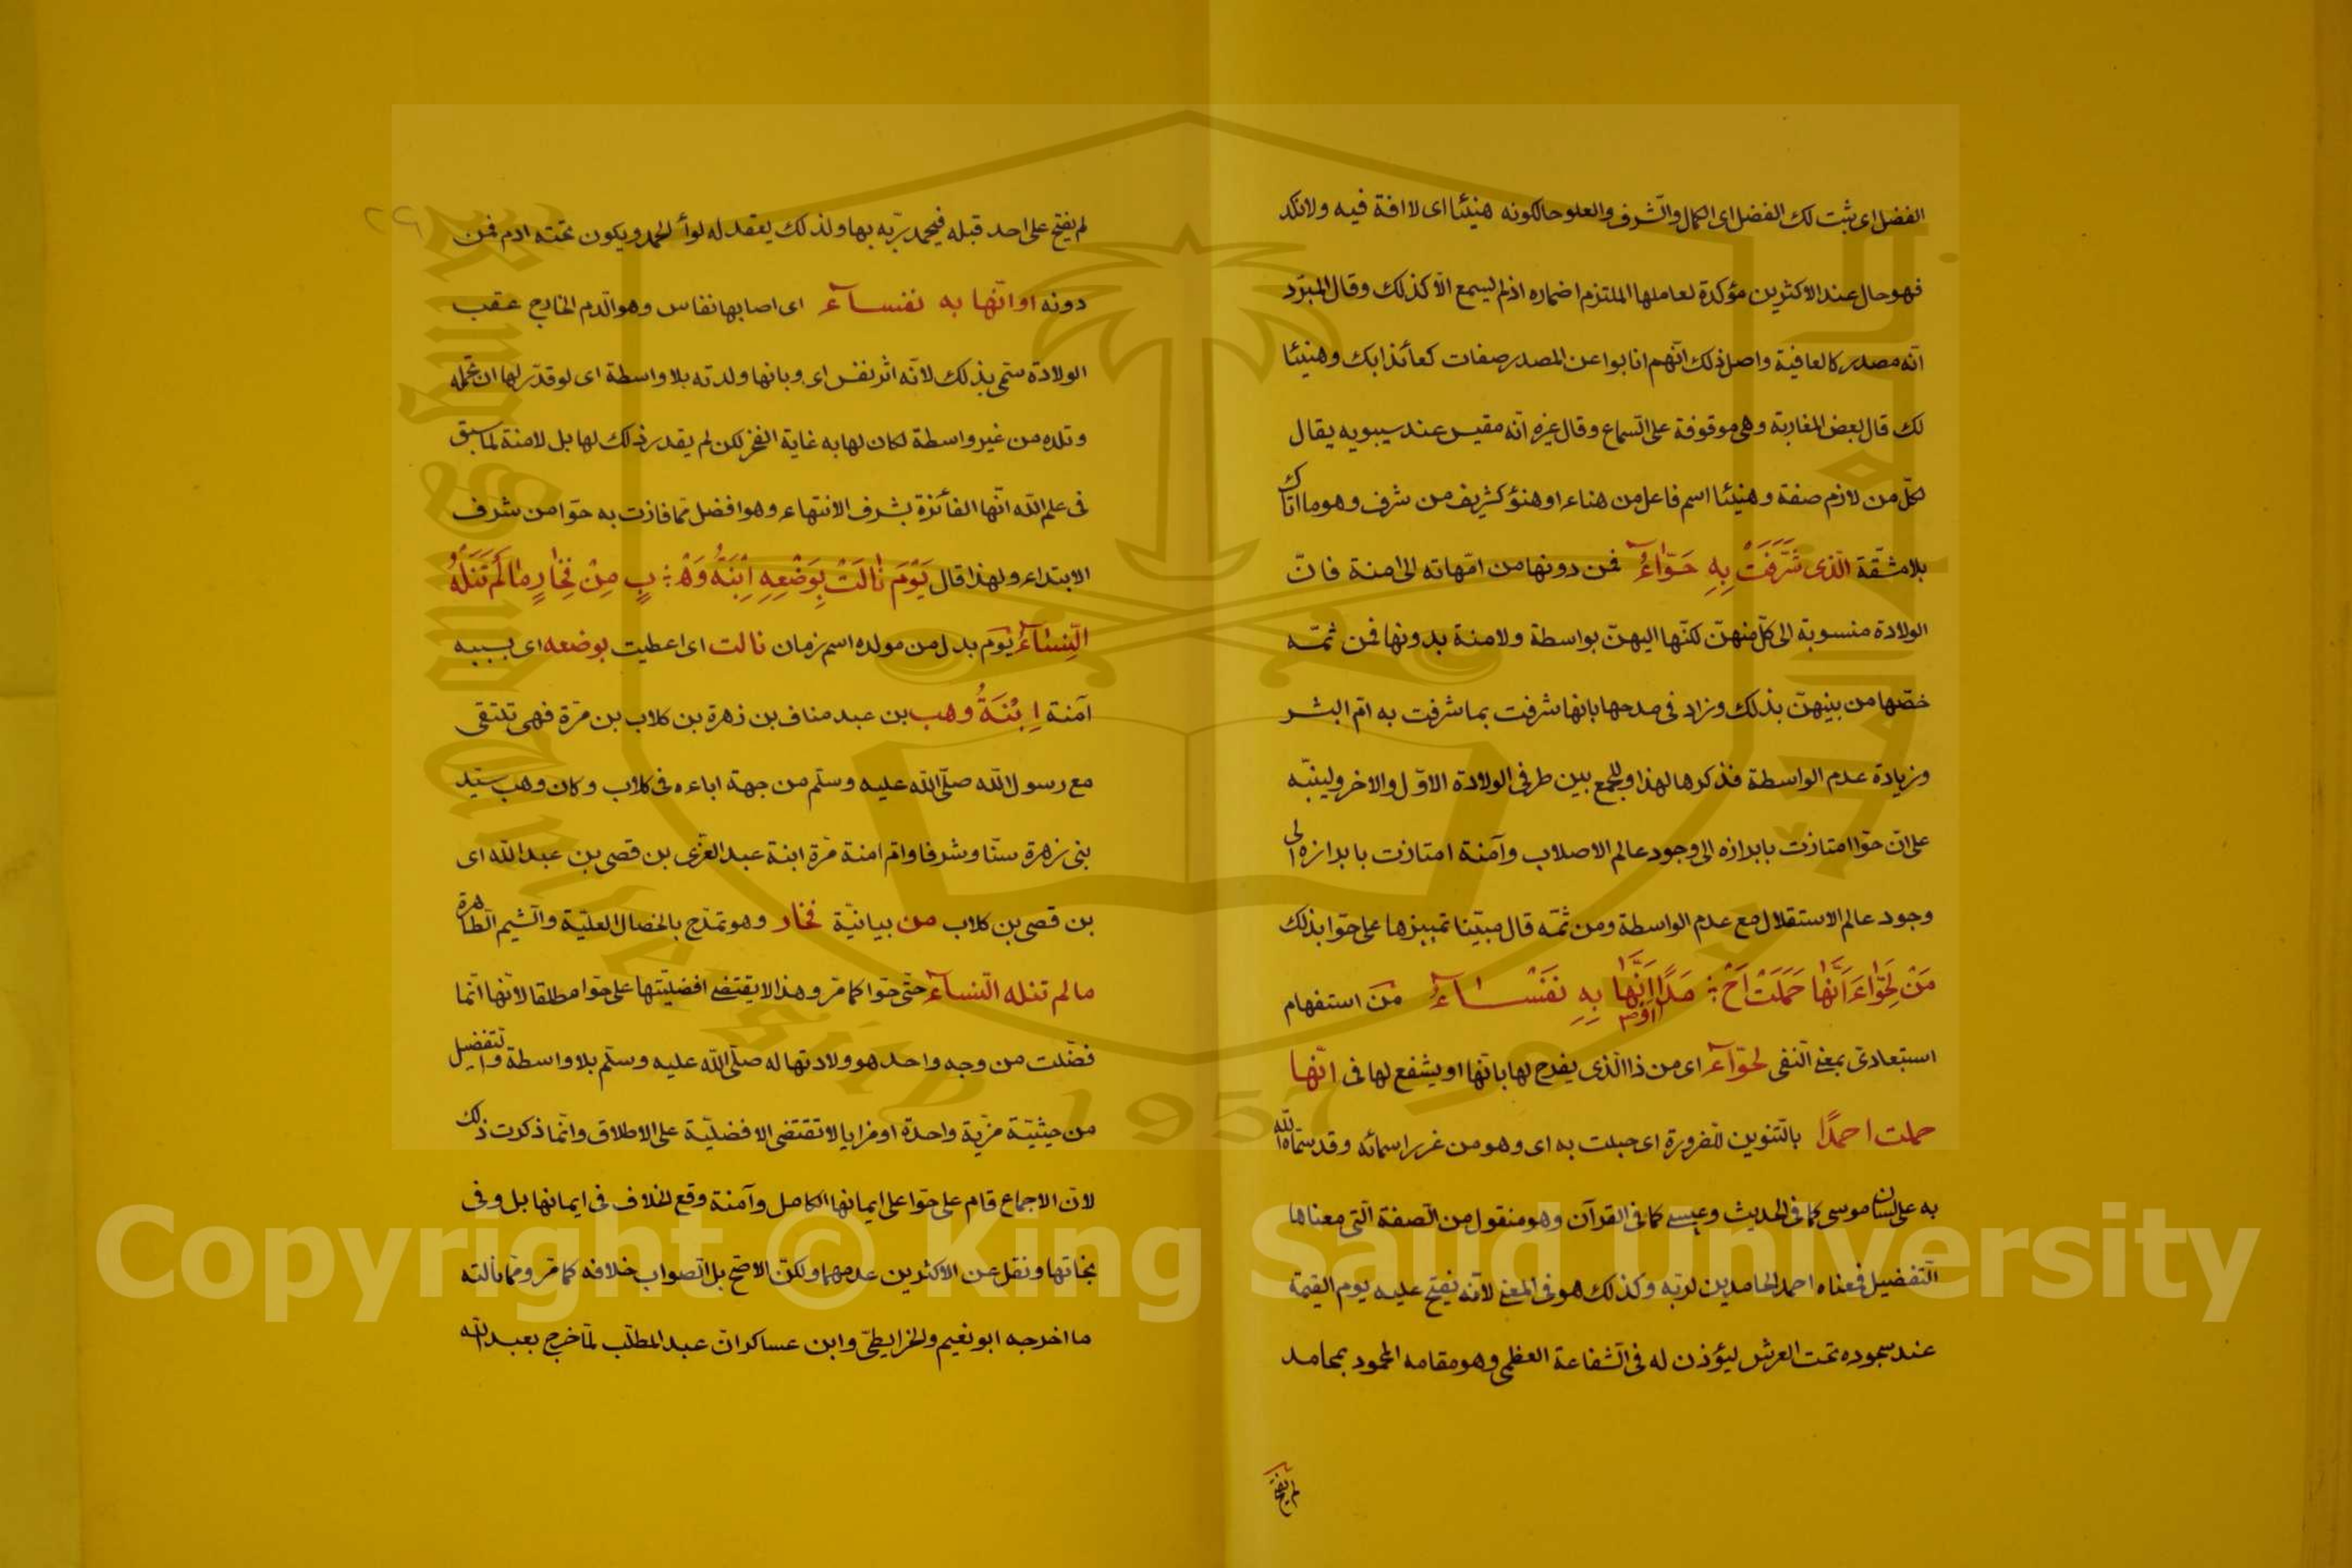 الفضل اى ثبت لك الفضل اى الكمال والشرف والعلو حالكونه هنيئا اى لا افة فيه ولا نكد
فهو حال عند الاكثرين مؤكدة لعاملها الملتزم اضماره اذ لم يسمع الا كذلك وقال المبرّد
انّه مصدر كالعافية واصل ذلك انّهم انابوا عن المصدر صفات كعائذا بك وهنيئا
لك قال بعض المغاربة وهى موقوفة على السّماع وقال غيره انّه مقيس عند سيبويه يقال
لكلّ من لازم صفة وهنيئا اسم فاعل من هناء او هنؤ كشريف من شرف وهو ما اتاك
بلا مشقّة الّذى شَرُفَتْ بِهِ حَوّاءُ فمن دونها من امّهاته الى امنة فانّ
الولادة منسوبة الى كلّ منهنّ لكنّها اليهنّ بواسطة ولامنة بدونها فمن ثمّه
خصّها من بينهنّ بذلك وزاد فى مدحها بانها شرفت بما شرفت به امّ البشر
وزيادة عدم الواسطة فذكرها لهذا وللجمع بين طرفى الولادة الاوّل والاخر ولينبّه
على انّ حوّا امتازت بابرازه الى وجود عالم الاصلاب وآمنة امتازت بابرازه الى
وجود عالم الاستقلال مع عدم الواسطة ومن ثمّه قال مبيّنا تميزها على حوّا بذلك
مَنْ لِحَوّاءَ اَنَّها حَمَلَتْ اَحْ ؞ مَدًا اَوْ اَنَّها بِهِ نَفْسـاءُ مَن استفهام
استبعادىّ بمعنى النّفى لحوّاء اى من ذا الّذى يفرح لها بانّها او يشفع لها فى انّها
حملت احمدًا بالتّنوين للضرورة اى حبلت به اى وهو من غرر اسمائه وقد سمّاه الله
به على لسان موسى كما فى الحديث وعيسى كما فى القرآن وهو منقول من الصفة الّتى معناها
التّفضيل فمعناه احمد الحامدين لربّه وكذلك هو فى المعنى لانّه يفتح عليه يوم القيمة
عند سجوده تحت العرش ليؤذن له فى الشّفاعة العظمى وهو مقامه المحمود بمحامد
لم يفتح
٢٩
لم يفتح على احد قبله فيحمد ربّه بها ولذلك يعقد له لوأ الحمد ويكون تحته ادم فمن
دونه او انّها به نفسـاء اى اصابها نفاس وهو الدّم الخارج عقب
الولادة سمّى بذلك لانّه اثر نفس اى وبانها ولدته بلا واسطة اى لو قدّر لها ان تحمله
وتلده من غير واسطة لكان لها به غاية الفخر لكن لم يقدر ذلك لها بل لامنة لما سبق
فى علم الله انّها الفائزة بشرف الانتهاء وهو افضل ممّا فازت به حوّا من شرف
الابتداء ولهذا قال يَوْمَ نٰالَتْ بِوَضْعِهِ اِبْنَةُ وَهْـ ؞ بٍ مِنْ فَخٰارٍ مٰا لَمْ تَنَلْهُ
النِّسٰاءُ يَوْم بدل من مولده اسم زمان نالت اى اعطيت بوضعه اى بسببه
آمنة اِبْنَةُ وهب بن عبد مناف بن زهرة بن كلاب بن مرّة فهى تلتقى
مع رسول الله صلّى الله عليه وسلّم من جهة اباءه فى كلاب وكان وهب سيّد
بنى زهرة سنّا وشرفا وامّ امنة مرّة ابنة عبد العزّى بن قصى بن عبد الله اى
بن قصى بن كلاب من بيانيّة فخار وهو تمدّح بالخصال العليّة والشيم الطاهرة
ما لم تنله النساء حتّى حوّا كما مرّ وهذا لا يقتضى افضليّتها على حوّا مطلقا لانّها انّما
فضّلت من وجه واحد هو ولادتها له صلّى الله عليه وسلّم بلا واسطة والتفضيل
من حيثيّة مزيّة واحدة او مزايا لا تقتضى الافضليّة على الاطلاق وانّما ذكرت ذلك
لانّ الاجماع قام على حوّا على ايمانها الكامل وآمنة وقع الخلاف فى ايمانها بل وفى
نجاتها ونقل عن الاكثرين عدمهما ولكنّ الاصحّ بل الصواب خلافه كما مرّ وممّا نالته
ما اخرجه ابو نعيم والخرايطىّ وابن عساكر انّ عبد المطّلب لمّا خرج بعبد الله
Copyright © King Saud University
King Saud University
1957